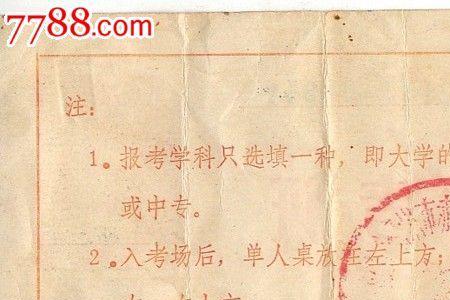 7788.com
注：
1。报考学科只选填一种，即大学的
或中专。
2。入考场后，单人桌放在左上方；